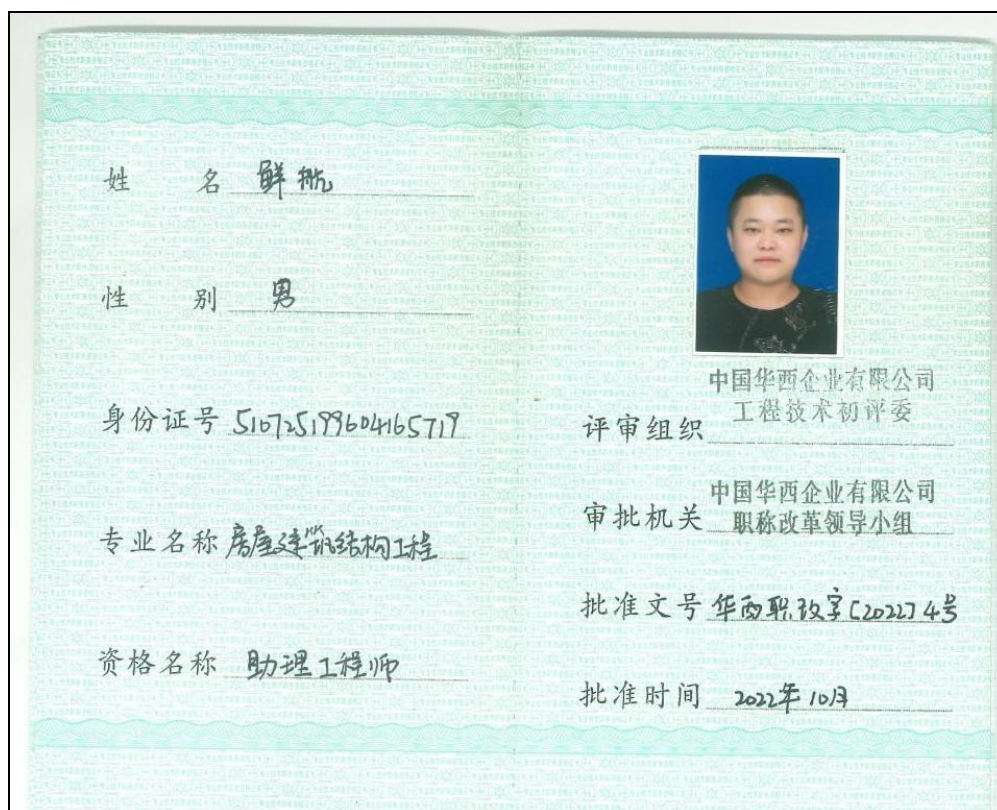 姓名 鲜航
性别 男
身份证号 510725199604165719
专业名称 房屋建筑结构工程
资格名称 助理工程师
中国华西企业有限公司
评审组织 工程技术初评委
中国华西企业有限公司
审批机关 职称改革领导小组
批准文号 华西职改字[2022]4号
批准时间 2022年10月